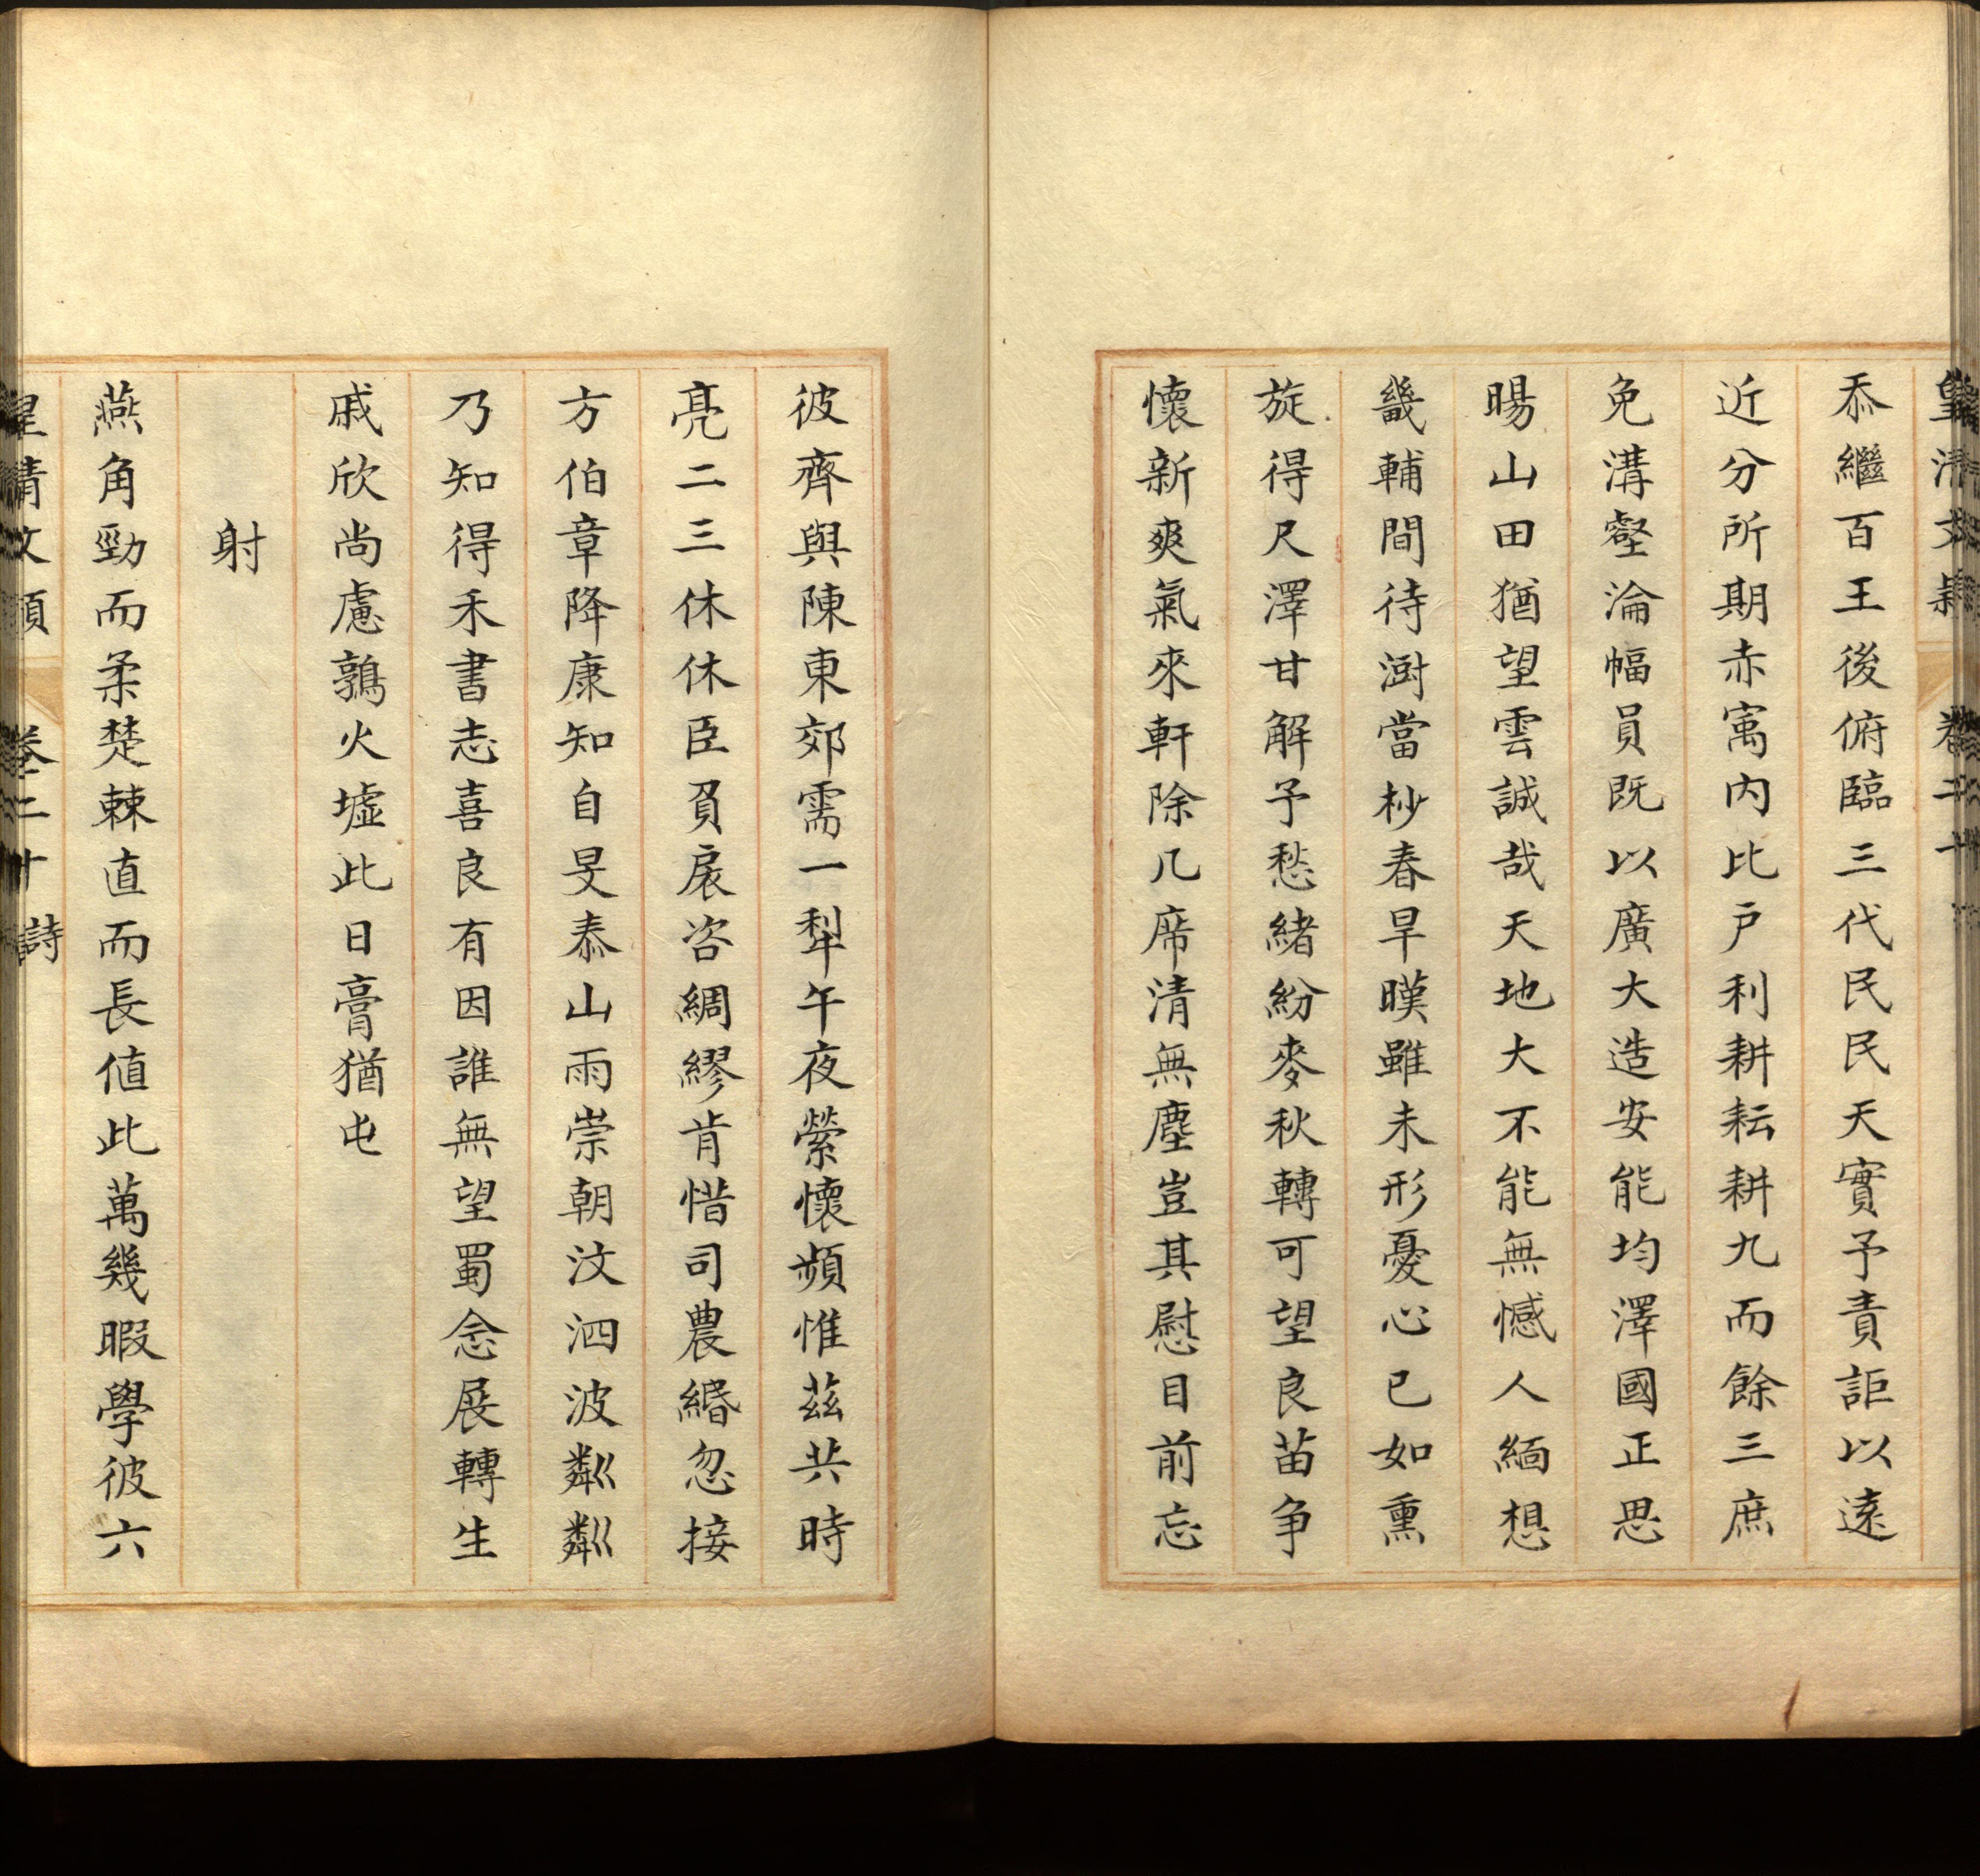 皇清文穎 卷二十
忝繼百王後俯臨三代民民天實予責詎以遠
近分所期赤㝢内比户利耕耘耕九而餘三庶
免溝壑淪幅員既以廣大造安能均澤國正思
暘山田猶望雲誠哉天地大不能無憾人緬想
畿輔間待澍當杪春旱暵雖未形憂心已如熏
旋得尺澤甘解予愁緒紛麥秋轉可望良苗争
懷新爽氣來軒除几席清無塵豈其慰目前忘
彼齊與陳東郊需一犂午夜縈懷頻惟茲共時
亮二三休休臣負扆咨綢繆肯惜司農緡忽接
方伯章降康知自旻泰山雨崇朝汶泗波粼粼
乃知得禾書志喜良有因誰無望蜀念展轉生
戚欣尚慮鶉火墟此日膏猶屯
射
燕角勁而柔楚棘直而長值此萬幾暇學彼六
皇清文穎 卷二十 詩